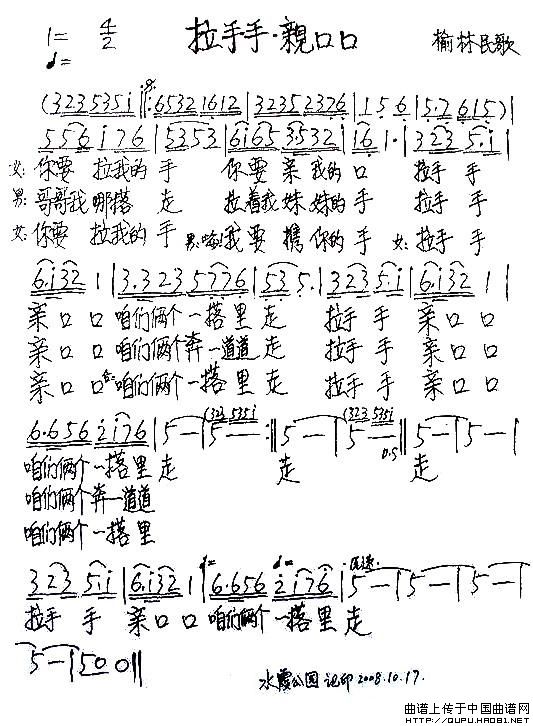 1= 4/2 拉手手·親口口 榆林民歌
(323 535i ‖: 6532 1612 | 3235 2376 | 1 5 6 | 5.7 615) |
556 i76 | 5353 | 6i65 3532 | i6 1· | 323 5·i |
女:你要 拉我的 手 你要 亲 我的 口 拉手 手
男:哥哥我 哪搭 走 拉着我 妹妹的 手 拉手 手
女:你要 拉我的 手 男:我要 携 你的 手 女:拉手 手
6.i32 1 | 3.323 5776 | 53 5. | 323 5.i | 6.i32 1 |
亲口 口 咱们俩个 一搭里 走 拉手 手 亲口 口
亲口 口 咱们俩个奔 一道道 走 拉手 手 亲口 口
亲口 口 合:咱们俩个 一搭里 走 拉手 手 亲口 口
(323 535i (323 535i
6.656 2i76 | 5 — | 5 — :‖ 5 — | 5 — ‖ 5 — | 5 — |
咱们俩个 一搭里 走 走 走
咱们俩个奔 一道道
咱们俩个 一搭里
323 5i | 6.i32 1 | 6.656 2i76 | 5 — | 5 — | 5 — |
拉手 手 亲口 口 咱们俩个 一搭里 走
5 — | 50 0 ‖
水霞公园 记印 2008.10.17.
曲谱上传于中国曲谱网
HTTP://QUPU.HAO81.NET